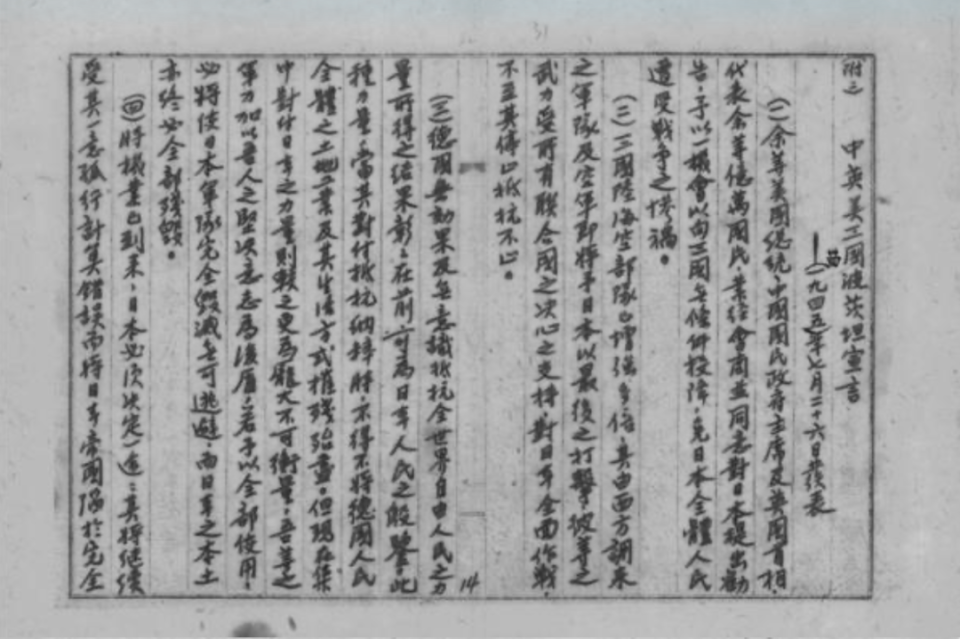 31
附三　中英美三國波茨坦宣言
一九四五年七月二十六日發表
(一)余等美國總統、中國國民政府主席及英國首相、
代表余等億萬國民、業經會商並同意對日本提出勸
告、予以一機會以向三國無條件投降、免日本全體人民
遭受戰爭之慘禍。
(二)三國陸海空部隊已增強多倍、其由西方調來
之軍隊及空軍即將予日本以最後之打擊、彼等之
武力受所有聯合國之決心之支持、對日本全面作戰、
不至其停止抵抗不止。
14
(三)德國無効果及無意識抵抗全世界自由人民之力
量所得之結果彰彰在前、可為日本人民之殷鑒、此
種力量當其對付抵抗納粹時、不得不將德國人民
全體之土地工業及其生活方式摧殘殆盡、但現在集
中對付日本之力量則較之更為龐大不可衡量、吾等之
軍力加以吾人之堅決意志為後盾、若予以全部使用、
必將使日本軍隊完全毀滅無可逃避、而日本之本土
亦終必全部殘毀。
(四)時機業已到來、日本必須決定一途：其將繼續
受其一意孤行計算錯誤而將日本帝國陷於完全